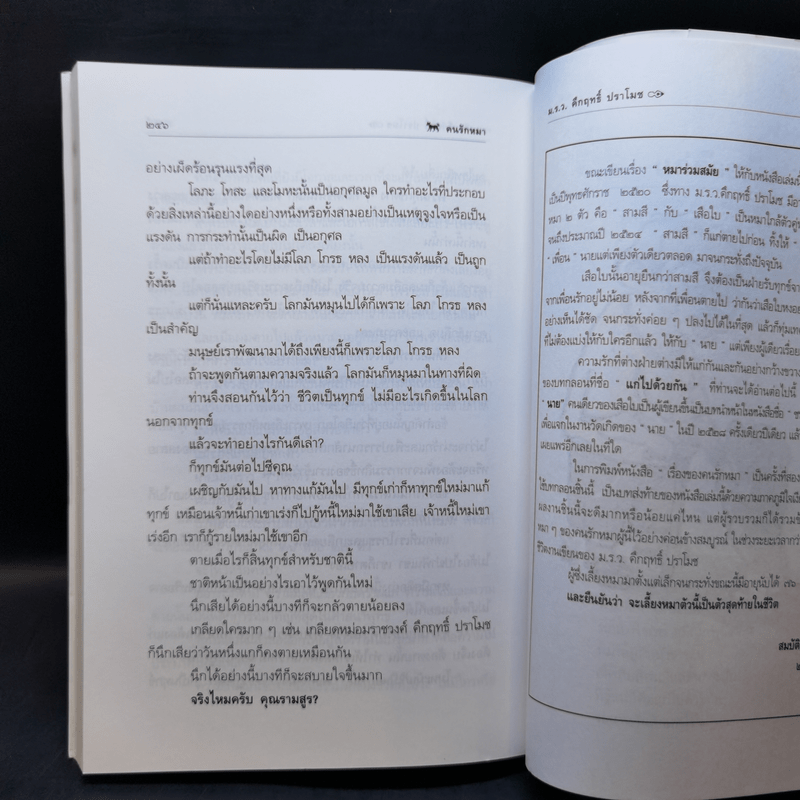 ๒๕๖
คนรักหมา
อย่างเผ็ดร้อนรุนแรงที่สุด
โลภะ โทสะ และโมหะนั้นเป็นอกุศลมูล ใครทำอะไรที่ประกอบ
ด้วยสิ่งเหล่านี้อย่างใดอย่างหนึ่งหรือทั้งสามอย่างเป็นเหตุจูงใจหรือเป็น
แรงดัน การกระทำนั้นเป็นผิด เป็นอกุศล
แต่ถ้าทำอะไรโดยไม่มีโลภ โกรธ หลง เป็นแรงดันแล้ว เป็นถูก
ทั้งนั้น
แต่ก็นั่นแหละครับ โลกมันหมุนไปได้ก็เพราะ โลภ โกรธ หลง
เป็นสำคัญ
มนุษย์เราพัฒนามาได้ถึงเพียงนี้ก็เพราะโลภ โกรธ หลง
ถ้าจะพูดกันตามความจริงแล้ว โลกมันก็หมุนมาในทางที่ผิด
ท่านจึงสอนกันไว้ว่า ชีวิตเป็นทุกข์ ไม่มีอะไรเกิดขึ้นในโลก
นอกจากทุกข์
แล้วจะทำอย่างไรกันดีเล่า?
ก็ทุกข์มันต่อไปซีคุณ
เผชิญกับมันไป หาทางแก้มันไป มีทุกข์เก่าก็หาทุกข์ใหม่มาแก้
ทุกข์ เหมือนเจ้าหนี้เก่าเขาเร่งก็ไปกู้หนี้ใหม่มาใช้เขาเสีย เจ้าหนี้ใหม่เขา
เร่งอีก เราก็กู้รายใหม่มาใช้เขาอีก
ตายเมื่อไรก็สิ้นทุกข์สำหรับชาตินี้
ชาติหน้าเป็นอย่างไรเอาไว้พูดกันใหม่
นึกเสียได้อย่างนี้บางทีก็จะกลัวตายน้อยลง
เกลียดใครมาก ๆ เช่น เกลียดหม่อมราชวงศ์ คึกฤทธิ์ ปราโมช
ก็นึกเสียว่าวันหนึ่งแกก็คงตายเหมือนกัน
นึกได้อย่างนี้บางทีก็จะสบายใจขึ้นมาก
จริงไหมครับ คุณรามสูร?
ม.ร.ว. คึกฤทธิ์ ปราโมช
ขณะเขียนเรื่อง " หมาร่วมสมัย " ให้กับหนังสือเล่มนี้
เป็นปีพุทธศักราช ๒๕๒๐ ซึ่งทาง ม.ร.ว.คึกฤทธิ์ ปราโมช มี
หมา ๒ ตัว คือ " สามสี " กับ " เสือใบ " เป็นหมาใกล้ตัว
จนถึงประมาณปี ๒๕๒๔ " สามสี " ก็แก่ตายไปก่อน ทิ้งให้ "
" เพื่อน " นายแต่เพียงตัวเดียวตลอด มาจนกระทั่งถึงปัจจุบัน
เสือใบนั้นอายุยืนกว่าสามสี จึงต้องเป็นฝ่ายรับทุกข์จาก
จากเพื่อนรักอยู่ไม่น้อย หลังจากที่เพื่อนตายไป ว่ากันว่าเสือใบหงอย
อย่างเห็นได้ชัด จนกระทั่งค่อย ๆ ปลงไปได้ในที่สุด แล้วก็ทุ่มเท
ที่ไม่ต้องแบ่งให้กับใครอีกแล้ว ให้กับ " นาย " แต่เพียงผู้เดียวเรื่อย
ความรักที่ต่างฝ่ายต่างมีให้แก่กันและกันอย่างกว้างขวาง
ของบทกลอนที่ชื่อ " แก่ไปด้วยกัน " ที่ท่านจะได้อ่านต่อไปนี้
" นาย" คนเดียวของเสือใบเป็นผู้เขียนขึ้นเป็นบทนำหน้าในหนังสือชื่อ "
แจกในงานวันเกิดของ " นาย " ในปี ๒๕๒๘ ครั้งเดียวปีเดียว แล้ว
เผยแพร่อีกเลยในที่ใด
ในการพิมพ์หนังสือ " เรื่องของคนรักหมา " เป็นครั้งที่สอง
ใช้บทกลอนชิ้นนี้ เป็นบทส่งท้ายของหนังสือเล่มนี้ด้วยความภาคภูมิใจ
ผลงานชิ้นนี้จะดีมากหรือน้อยแค่ไหน แต่ผู้รวบรวมก็ได้รวม
หมา ๆ ของคนรักหมาผู้นี้ไว้อย่างค่อนข้างสมบูรณ์ ในช่วงระยะเวลากว่า
ชีวิตงานเขียนของ ม.ร.ว. คึกฤทธิ์ ปราโมช
ผู้ซึ่งเลี้ยงหมามาตั้งแต่เล็กจนกระทั่งขณะนี้มีอายุนับได้ ๗๖
และยืนยันว่า จะเลี้ยงหมาตัวนี้เป็นตัวสุดท้ายในชีวิต
สมบัติ